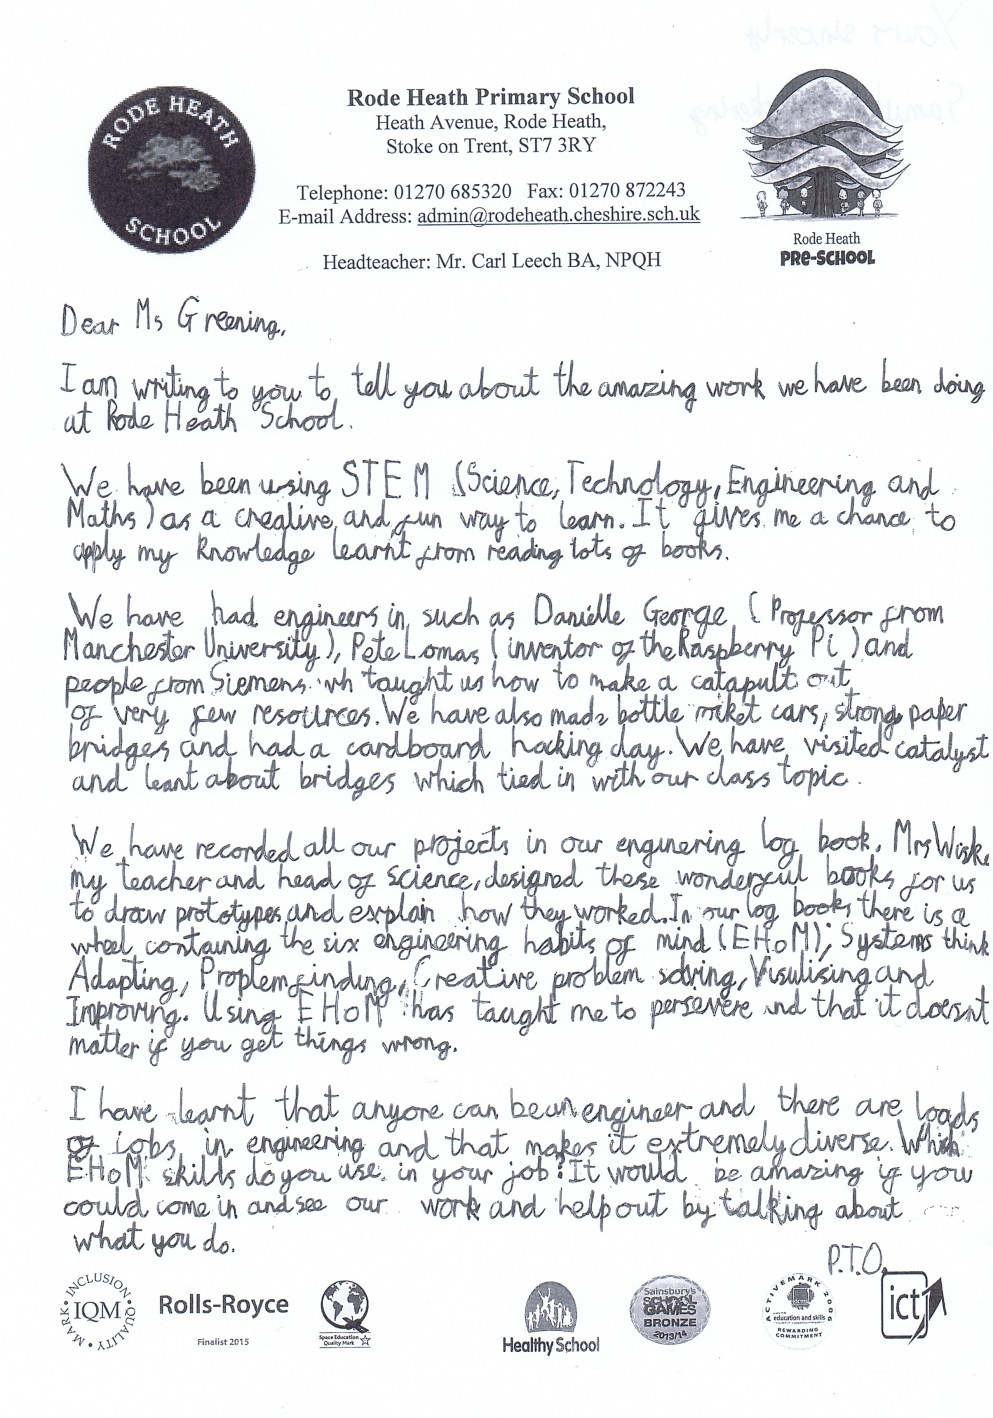 RODE HEATH
SCHOOL
Rode Heath Primary School
Heath Avenue, Rode Heath,
Stoke on Trent, ST7 3RY
Telephone: 01270 685320 Fax: 01270 872243
E-mail Address: admin@rodeheath.cheshire.sch.uk
Headteacher: Mr. Carl Leech BA, NPQH
Rode Heath
PRE-SCHOOL
Dear Ms Greening,
I am writing to you to tell you about the amazing work we have been doing
at Rode Heath School.
We have been using STEM (Science, Technology, Engineering and
Maths) as a creative and fun way to learn. It gives me a chance to
apply my knowledge learnt from reading lots of books.
We have had engineers in, such as Danielle George (Professor from
Manchester University), Pete Lomas (inventor of the Raspberry Pi) and
people from Siemens wh taught us how to make a catapult out
of very few resources. We have also made bottle roket cars, strong paper
bridges and had a cardboard hacking day. We have visited catalyst
and leant about bridges which tied in with our class topic.
We have recorded all our projects in our enginering log book. Mrs
my teacher and head of science, designed these wonderful books for us
to draw prototypes and explain how they worked. In our log books there is a
wheel containing the six engineering habits of mind (EHoM); Systems think
Adapting, Proplem finding, Creative problem solving, Visulising and
Improving. Using EHoM has taught me to persevere and that it doesnt
matter if you get things wrong.
I have learnt that anyone can be an engineer and there are loads
of jobs in engineering and that makes it extremely diverse. Which
EHoM skills do you use in your job? It would be amazing if you
could come in and see our work and help out by talking about
what you do.
P.T.O.
INCLUSION QUALITY MARK
IQM
Rolls-Royce
Finalist 2015
Space Education
Quality Mark
Healthy School
Sainsbury's
SCHOOL
GAMES
BRONZE
2013/14
ACTIVEMARK 2006
education and skills
REWARDING
COMMITMENT
ict